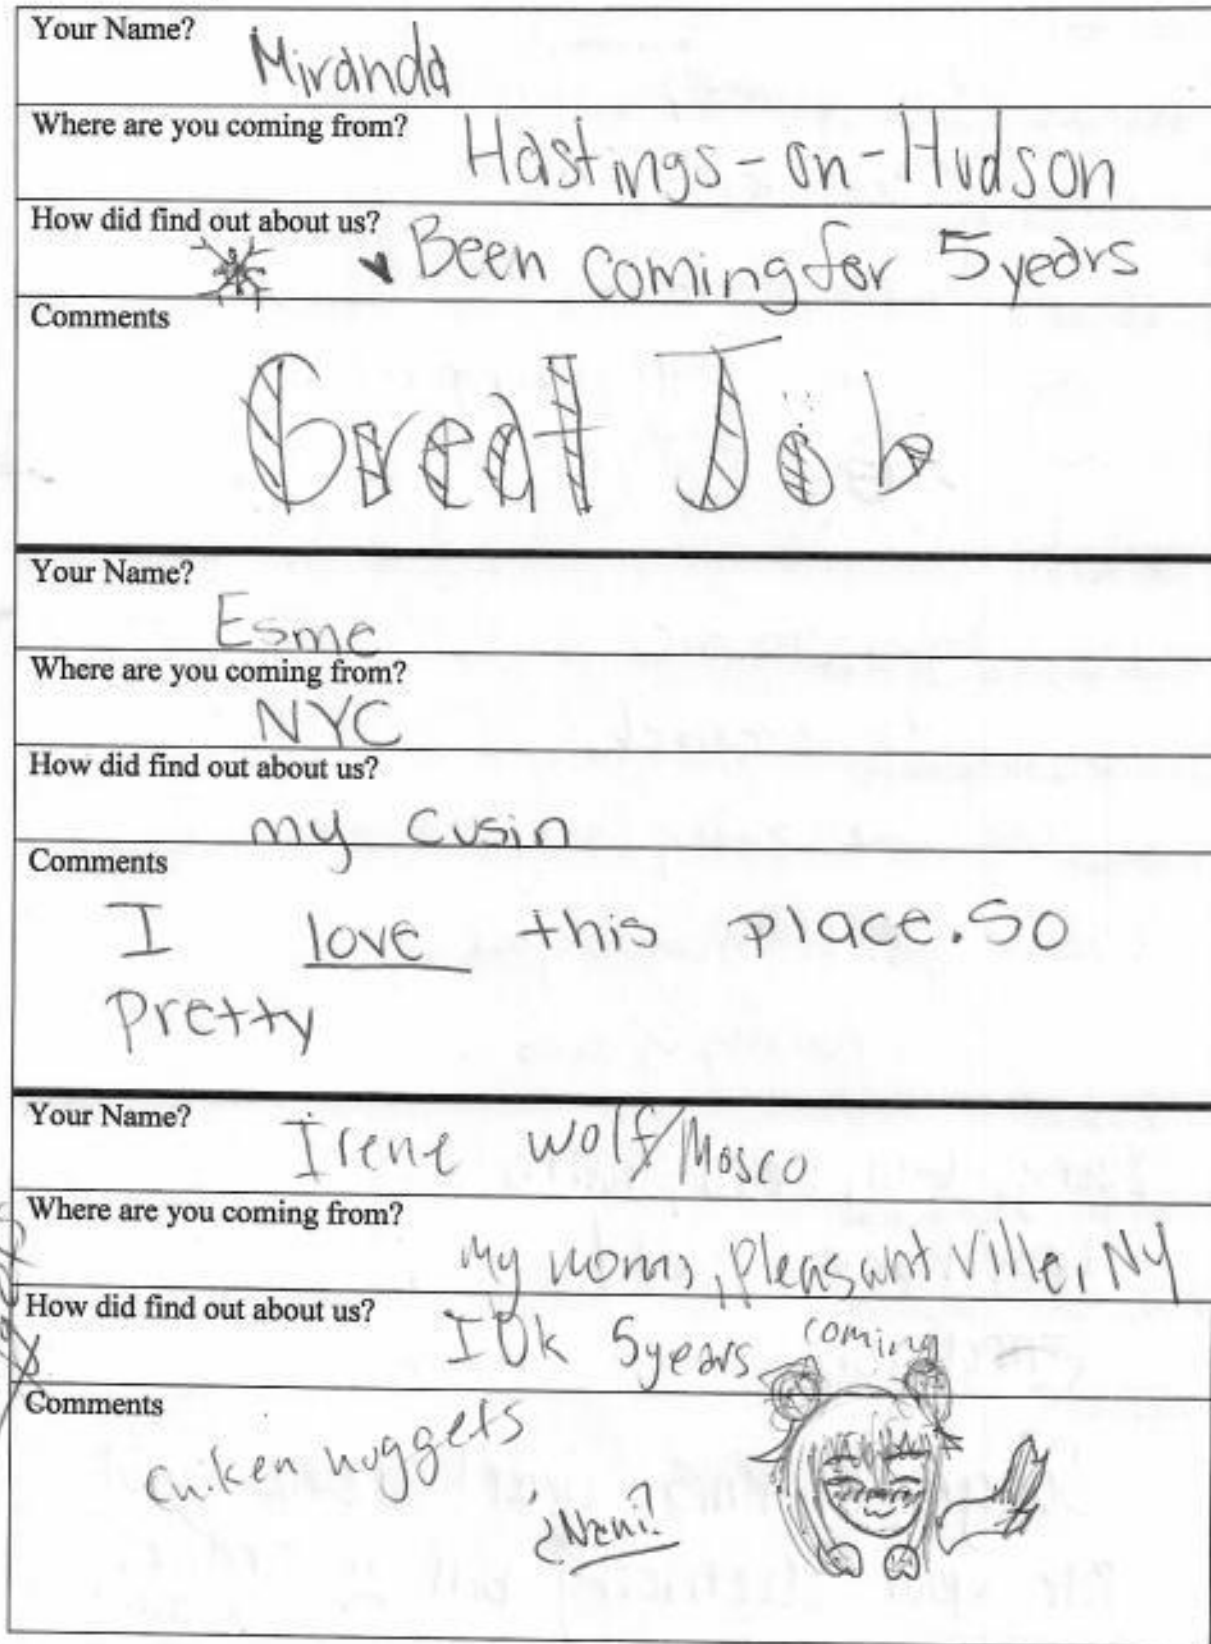 Your Name?
Miranda
Where are you coming from?
Hastings-on-Hudson
How did find out about us?
Been coming for 5 years
Comments
Great Job
Your Name?
Esme
Where are you coming from?
NYC
How did find out about us?
my cusin
Comments
I love this place. So
pretty
Your Name?
Irene Wolf/Mosco
Where are you coming from?
my moms, pleasantville, NY
How did find out about us?
IDk 5 years coming
Comments
chiken nuggets
¿Nani?